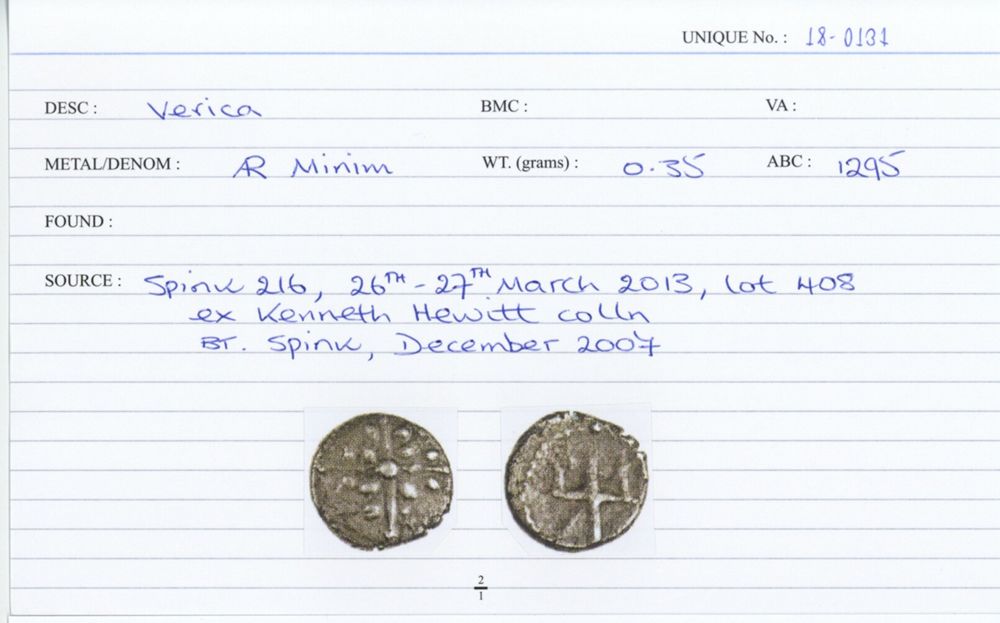 UNIQUE No. : 18-0131
DESC : Verica BMC : VA :
METAL/DENOM : AR Minim WT. (grams) : 0.35 ABC : 1295
FOUND :
SOURCE : Spink 216, 26TH-27TH March 2013, lot 408
ex Kenneth Hewitt colln
BT. Spink, December 2007
2
1